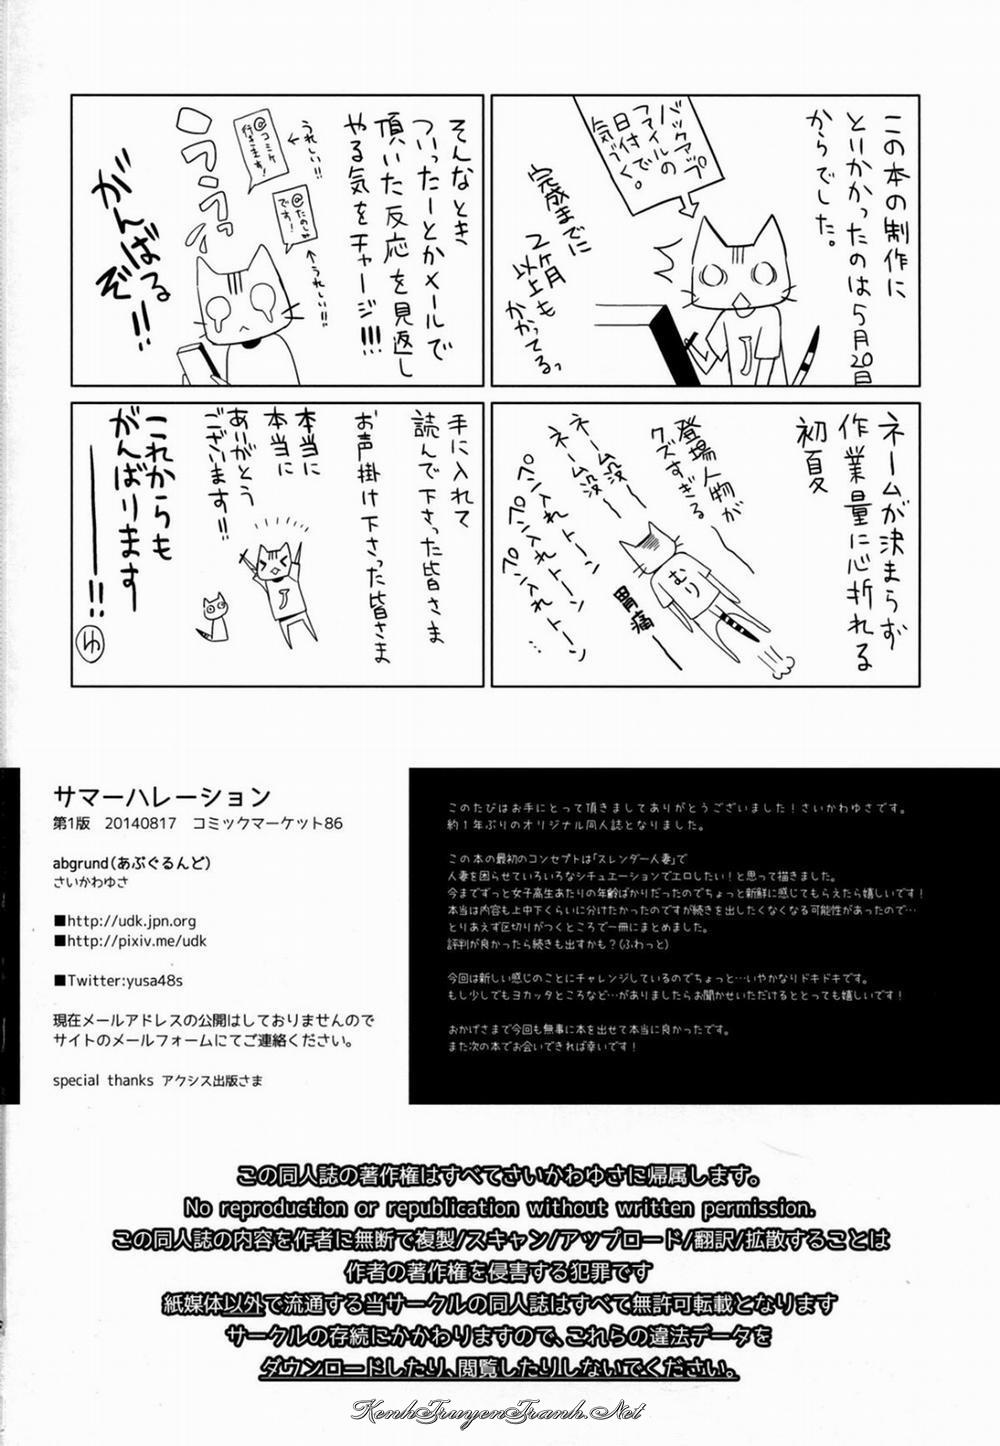 この本の制作に
とりかかったのは5月20日
からでした。
バックアップ
ファイルの
日付で
気づく。
完成までに
2ヶ月
以上も
かかってるっ
そんなとき
ついったーとかメールで
頂いた反応を見返し
やる気をチャージ!!!
うれしい!!
@コミケ
行きます!
@たのしみ
です!
うれしい!!
がんばる
ぞ!!
ネームが決まらず
作業量に心折れる
初夏
登場人物が
クズすぎる
ネーム没〜
ネーム没〜
ペン入れトーン
ペンペン入れトーン
ペン入れトーン…
むり
胃痛〜
手に入れて
読んで下さった皆さま
お声掛け下さった皆さま
本当に
本当に
ありがとう
ございます!!
J
これからも
がんばります
――!!
ゆ
サマーハレーション
第1版 20140817 コミックマーケット86
abgrund(あぶぐるんど)
さいかわゆさ
■http://udk.jpn.org
■http://pixiv.me/udk
■Twitter:yusa48s
現在メールアドレスの公開はしておりませんので
サイトのメールフォームにてご連絡ください。
special thanks アクシス出版さま
このたびはお手にとって頂きましてありがとうございました!さいかわゆさです。
約1年ぶりのオリジナル同人誌となりました。
この本の最初のコンセプトは「スレンダー人妻」で
人妻を困らせていろいろなシチュエーションでエロしたい!と思って描きました。
今までずっと女子高生あたりの年齢ばかりだったのでちょっと新鮮に感じてもらえたら嬉しいです!
本当は内容も上中下くらいに分けたかったのですが続きを出したくなくなる可能性があったので…
とりあえず区切りがつくところで一冊にまとめました。
評判が良かったら続きも出すかも?(ふわっと)
今回は新しい感じのことにチャレンジしているのでちょっと…いやかなりドキドキです。
もし少しでもヨカッタところなど…がありましたらお聞かせいただけるととっても嬉しいです!
おかげさまで今回も無事に本を出せて本当に良かったです。
また次の本でお会いできれば幸いです!
この同人誌の著作権はすべてさいかわゆさに帰属します。
No reproduction or republication without written permission.
この同人誌の内容を作者に無断で複製/スキャン/アップロード/翻訳/拡散することは
作者の著作権を侵害する犯罪です
紙媒体以外で流通する当サークルの同人誌はすべて無許可転載となります
サークルの存続にかかわりますので、これらの違法データを
ダウンロードしたり、閲覧したりしないでください。
KenhTruyenTranh.Net